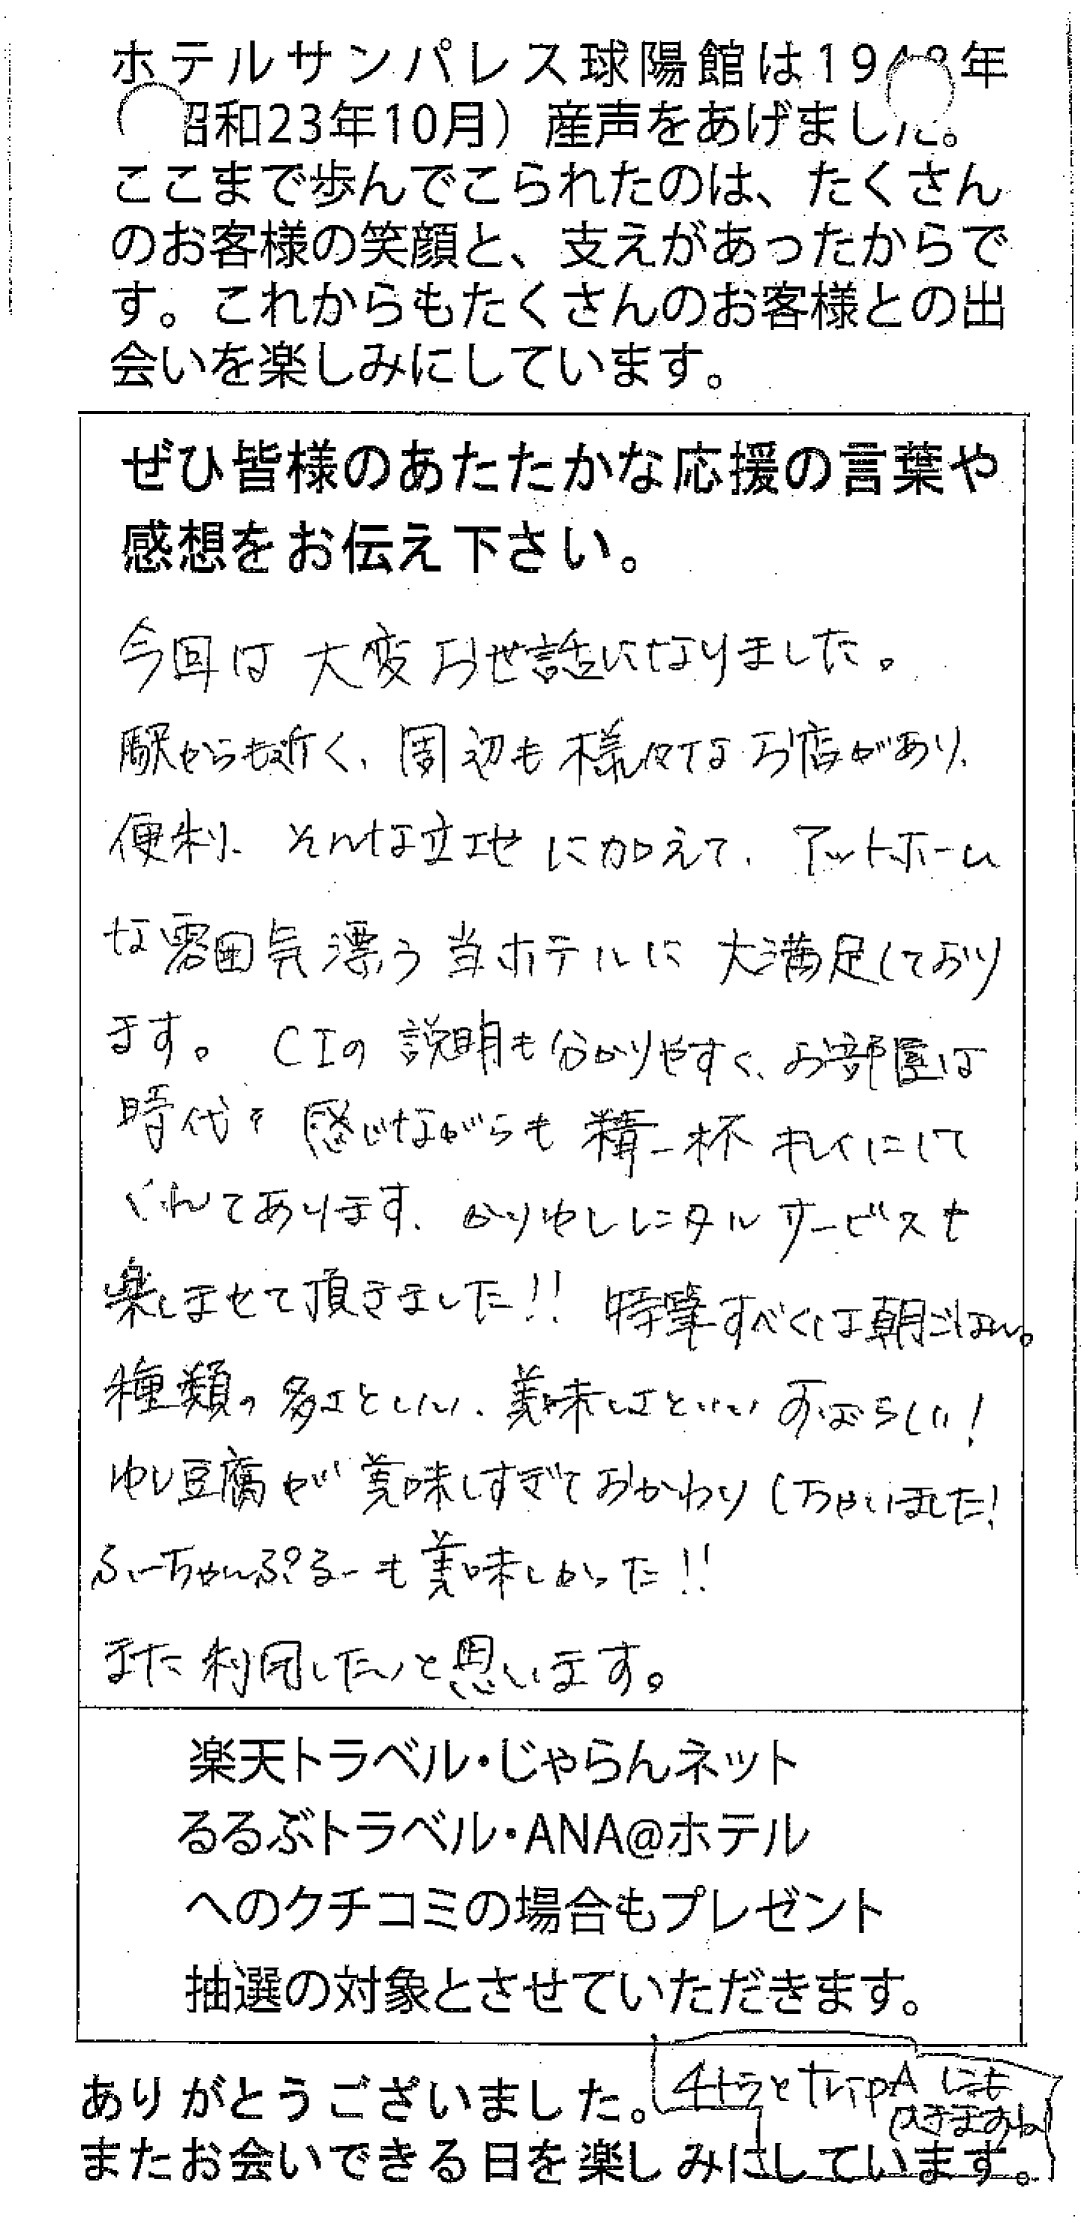 ホテルサンパレス球陽館は1948年
(昭和23年10月）産声をあげました。
ここまで歩んでこられたのは、たくさん
のお客様の笑顔と、支えがあったからで
す。これからもたくさんのお客様との出
会いを楽しみにしています。
ぜひ皆様のあたたかな応援の言葉や
感想をお伝え下さい。
今回は大変お世話になりました。
駅からも近く、周辺も様々なお店があり、
便利、そんな立地に加えて、アットホーム
な雰囲気漂う当ホテルに大満足しており
ます。CIの説明も分かりやすく、お部屋は
時代を感じながらも精一杯キレイにして
くれてあります、かりゆしレンタルサービスも
楽しませて頂きました!! 特筆すべくは朝ごはん。
種類の多さといい、美味しさといいすばらしい!
ゆし豆腐が美味しすぎておかわりしちゃいました!
ふーちゃんぷるーも美味しかった!!
また利用したいと思います。
楽天トラベル・じゃらんネット
るるぶトラベル・ANA@ホテル
へのクチコミの場合もプレゼント
抽選の対象とさせていただきます。
ありがとうございました。
4トラとtripAにも
のせますね
またお会いできる日を楽しみにしています。